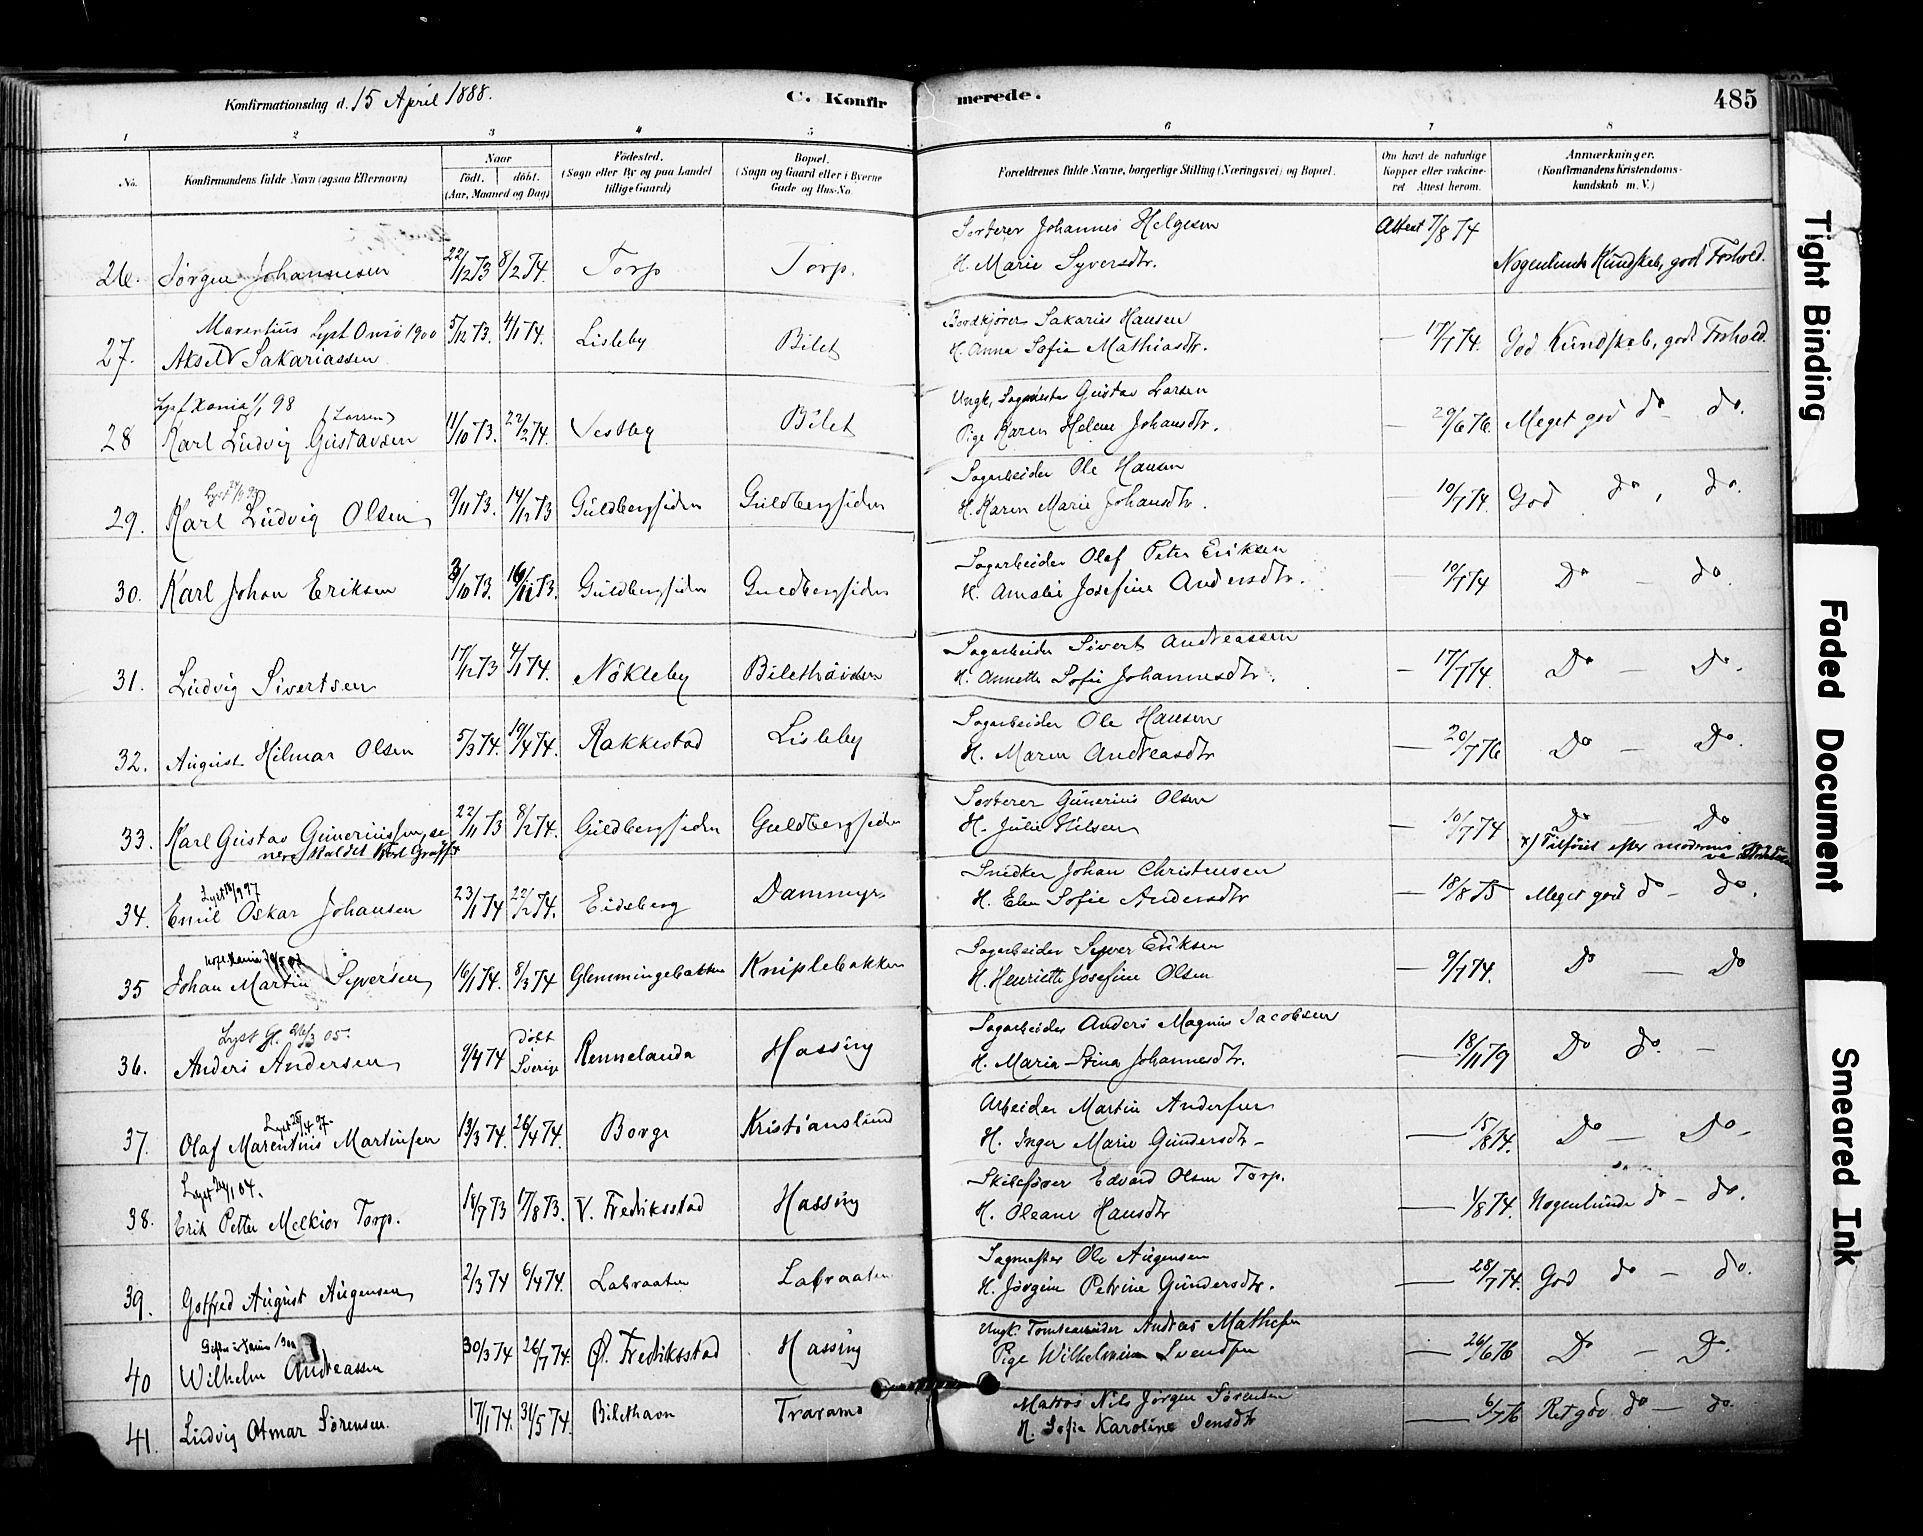 Konfirmationsdag d. 15 April 1888. C. Konfir merede. 485
1 2 3 4 5 6 7 8
No. Konfirmandens fulde Navn (ogsaa Efternavn) Naar født. døbt. (Aar, Maaned og Dag) Födested. (Sogn eller By og paa Landet tillige Gaard) Bopæl. (Sogn og Gaard eller i Byerne Gade og Hus-No. Forældrenes fulde Navne, borgerlige Stilling (Næringsvei) og Bopæl. Om havt de naturlige Kopper eller vakcineret Attest herom. Anmærkninger. (Konfirmandens Kristendomskundskab m. V.)
Sorterer Johannes Helgesen Attest 7/8 74
26. Jørgen Johannesen 22/12 73 8/2 74. Torp Torp. H. Marie Syversdtr. Nogenlunde Kundskab, god Forhold.
Marentius Lyst Onsø 1900 5/12 73. 4/1 74. Lisleby Bilet Bordkjører Sakarias Hansen
27. Aksel Sakariassen H. Anna Sofie Mathiasdtr. — 17/7 74. God Kundskab, godt Forhold.
Lyst Xania 1/1 98 (Larsen) Ungk. Sagmester Gustav Larsen
28 Karl Ludvig Gustavsen 11/10 73. 22/2 74. Vestby Bilet Pige Karen Helene Johansdtr. — 29/6 76. Meget god do — do.
Sagarbeider Ole Hansen
29. Karl Ludvig Olsen 9/11 73. 14/12 73 Guldbergsiden Guldbergsiden H. Karen Marie Johansdtr. — 10/7 74. God do, do.
Sagarbeider Olaf Peter Eriksen
30. Karl Johan Eriksen 3/10 73. 16/11 73. Guldbergsiden Guldbergsiden H. Amalie Josefine Andersdtr. — 10/7 74 Do — do.
Sagarbeider Sivert Andreassen
31. Ludvig Sivertsen 17/12 73 4/1 74. Nökleby H. Annette Sofie Johannesdtr. — 17/7 74. Do — Do.
Sagarbeider Ole Hansen
32. August Hilmar Olsen 5/3 74. 19/4 74. Rakkestad Lisleby H. Maren Andreasdtr — 20/7 76 Do — Do.
Sorterer Gunerius Olsen
33. Karl Gustav Guneriussen 22/11 73 8/2 74. Guldbergsiden Guldbergsiden H. Julie Nilsen — 10/7 74 Do — Do
x) Tilføiet efter moderens
Lyst 18/9 97 Snedker Johan Christensen
34. Emil Oskar Johansen 23/1 74 22/2 74. Eidsberg Dammyr H. Elen Sofie Andersdtr — 18/8 75 Meget god do — do.
Sagarbeider Syver Eriksen
35 Johan Martin Syversen 16/1 74. 8/3 74 Glemmingebakken Kniplebakken H. Henriette Josefine Olsen — 9/7 74. Do — Do
Lyst Gl. 26/3 05. Sagarbeider Anders Magnus Jacobsen
36. Anders Andersen 9/4 74 døbt Sverige Rennelanda Hassing H. Maria Stina Johannesdtr. — 18/11 79 Do do. —
Lyst 25/4 97. Arbeider Martin Andersen
37. Olaf Marentius Martinsen 13/3 74. 26/4 74. Borge Kristianslund H. Inger Marie Gundersdtr — 15/8 74. Do — Do —
Lyst 24/1 04. Edvard Olsen Torp.
38. Erik Petter Melkior Torp. 18/7 73 17/8 73. V. Fredriksstad Hassing H. Oleane Hansdtr — 1/8 74. Nogenlunde do — do.
Sagmester Ole Augensen
39. Gotfred August Augensen 2/3 74 6/4 74. Labraaten Labraaten H. Jørgine Petrine Gundersdtr. — 28/7 74. God do — do.
Ungk. Tomtearbeider Andreas Mathesen
40 Wilhelm Andreassen 30/3 74 26/7 74. Ø. Fredriksstad Hassing Pige Wilhelmine Svendsen — 26/6 76 Do — D.
Matros Nils Jørgen Sørensen
41. Ludvig Otmar Sörensen. 17/1 74. 31/5 74. Bilethavn Traramo H. Sofie Karoline Jensdtr — 6/7 76 Ret god. do — do.
Tight Binding
Faded Document
Smeared Ink